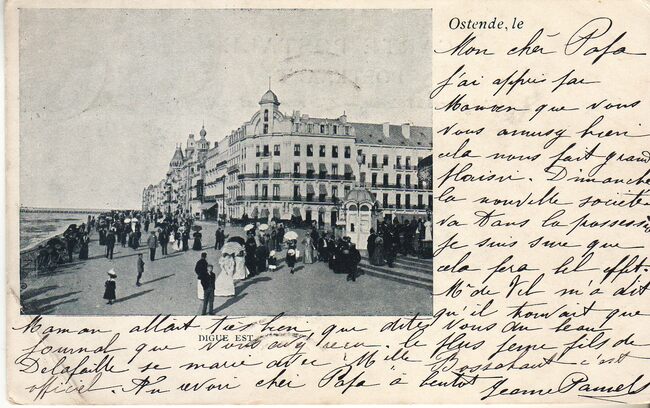 Ostende, le
Mon chèr Papa
j'ai appris par
Maman que vous
vous amusiez bien
cela nous fait grand
plaisir. Dimanche
la nouvelle société
va dans la possession
je suis sure que
cela fera bel effet.
Mr de Vil m'a dit
qu'il trouvait que
DIGUE EST
Maman allait très bien que dites vous du beau
journal que vous avez reçu. le plus jeune fils de
Delafaille se marie avec Melle c'est
officiel. Au revoir cher Papa à bientôt Jeanne